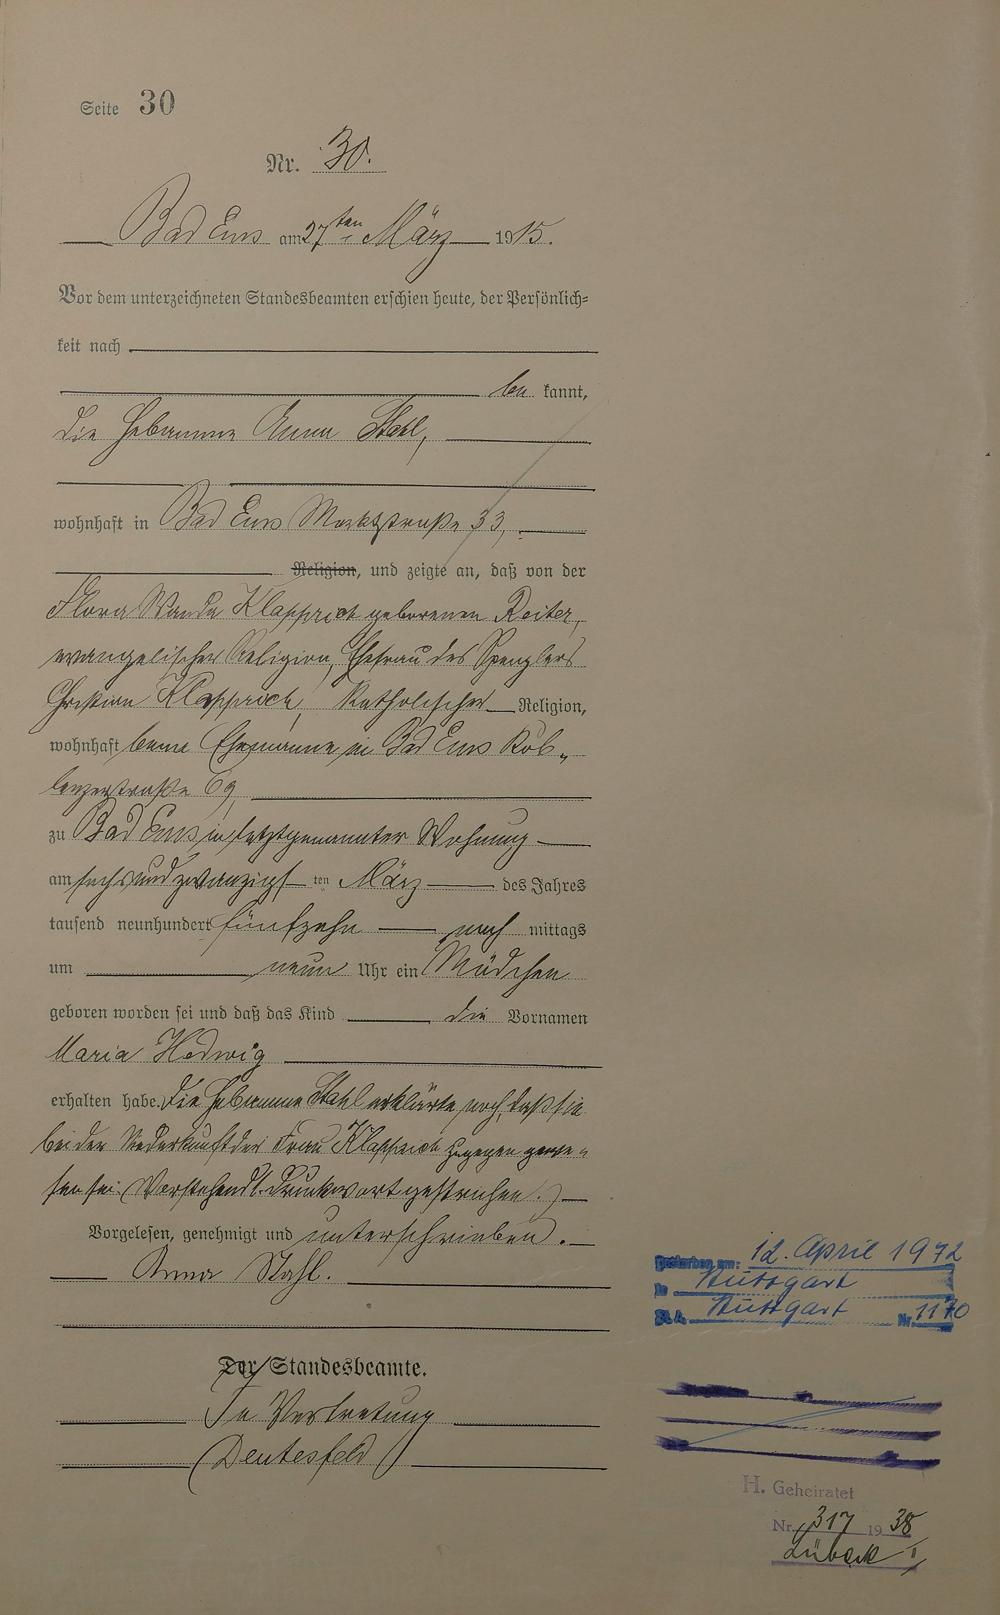 Seite 30
Nr. 30.
Bad Ems am 27ten März 1915.
Vor dem unterzeichneten Standesbeamten erschien heute, der Persönlich=
keit nach
be kannt,
die Hebamme Anna Stahl,
wohnhaft in Bad Ems Marktstraße 33,
Religion, und zeigte an, daß von der
Flora Wanda Klapprich geborenen Reiter,
evangelischer Religion, Ehefrau des Spenglers
Christian Klapprich, katholischer Religion,
wohnhaft beim Ehemanne in Bad Ems Kob„
lenzerstraße 69,
zu Bad Ems in letztgenannter Wohnung
am sechsundzwanzigs ten März des Jahres
tausend neunhundert fünfzehn nach mittags
um neun Uhr ein Mädchen
geboren worden sei und daß das Kind die Vornamen
Maria Hedwig
erhalten habe. Die Hebamme Stahl erklärte noch, daß sie
bei der Niederkunft der Frau Klapprich zugegen gewe„
sen sei. (Vorstehend 1 Druckwort gestrichen.)
Vorgelesen, genehmigt und unterschrieben.
Anna Stahl.
Der Standesbeamte.
In Vertretung
Gestorben am: 12. April 1972
in Stuttgart
St.A. Stuttgart Nr. 1170
H. Geheiratet
Nr. 317 1938
Lübeck I